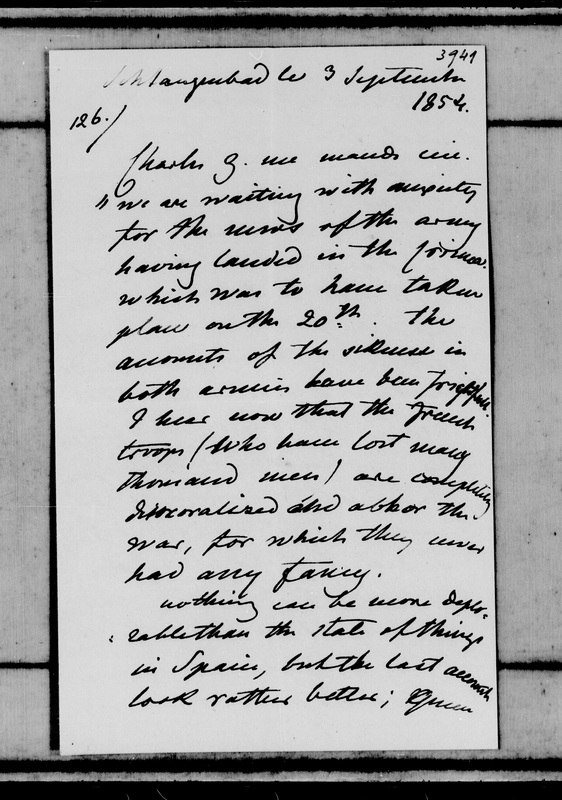 3941
Schlangenbad le 3 Septembre
1854.
126./
Charles G. me mande ici.
"we are waiting with anxiety
for the news of the army
having landed in the Crimea.
which was to have taken
place on the 20th. The
accounts of the sickness in
both armies have been frightful.
I hear now that the French
troops (who have lost many
thousand men) are completely
demoralized and abhor the
war, for which they never
had any fancy.
nothing can be more deplo-
rable than the state of things
in Spain, but the last accounts
look rather better; Queen